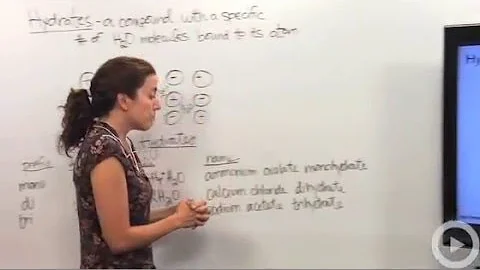 Hydrates - a compound with a specific
# of H2O molecules bound to its atom
Hydrates
prefix
name
mono
ammonium oxalate monohydrate
di
H2O
calcium chloride dihydrate
tri
sodium acetate trihydrate
Hy